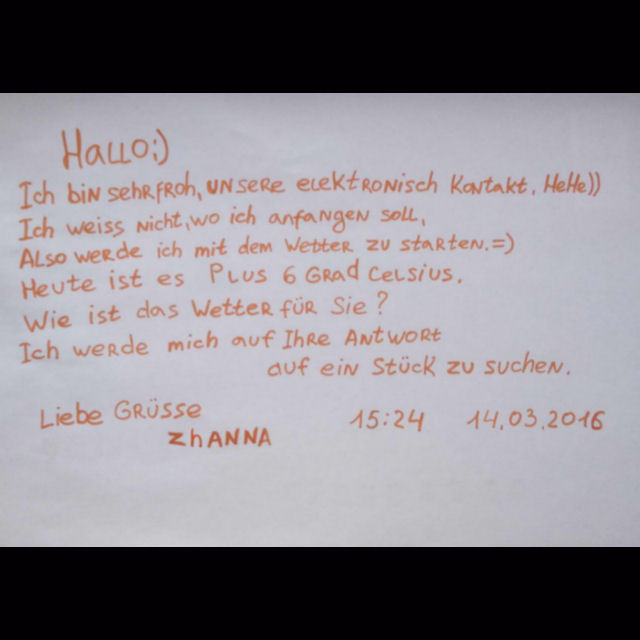 Hallo:)
Ich bin sehr froh, unsere elektronisch Kontakt. HeHe))
Ich weiss nicht, wo ich anfangen soll,
Also werde ich mit dem Wetter zu starten.=)
Heute ist es Plus 6 Grad Celsius.
Wie ist das Wetter für Sie?
Ich werde mich auf Ihre Antwort
auf ein Stück zu suchen.
Liebe Grüsse
Zhanna 15:24 14.03.2016